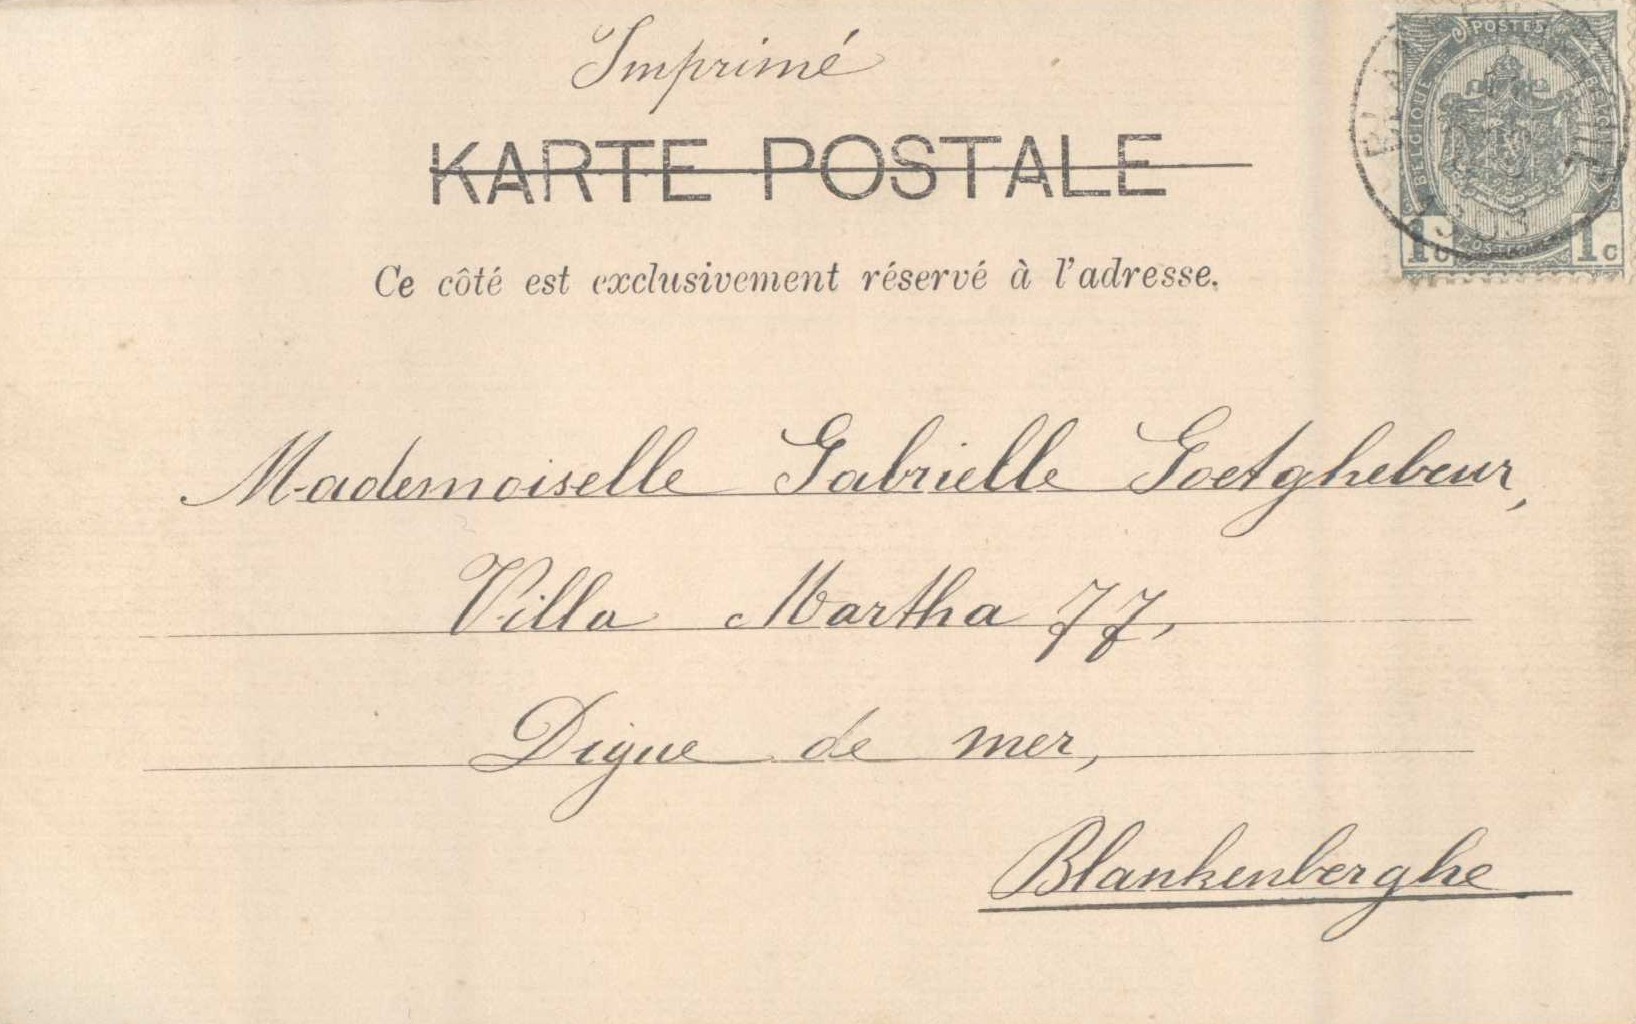 Imprimé
KARTE POSTALE
Ce côté est exclusivement réservé à l'adresse.
POSTES
BELGIQUE
BELGIË
1c
POSTERIJEN
1c
Mademoiselle Gabrielle Goetghebeur,
Villa Martha 77,
Digue de mer,
Blankenberghe